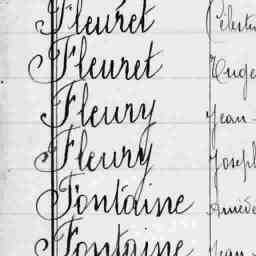 Fleuret Célestin
Fleuret Euge
Fleury Jean-
Fleury Joseph
Fontaine Amédé
Fontaine Jean-